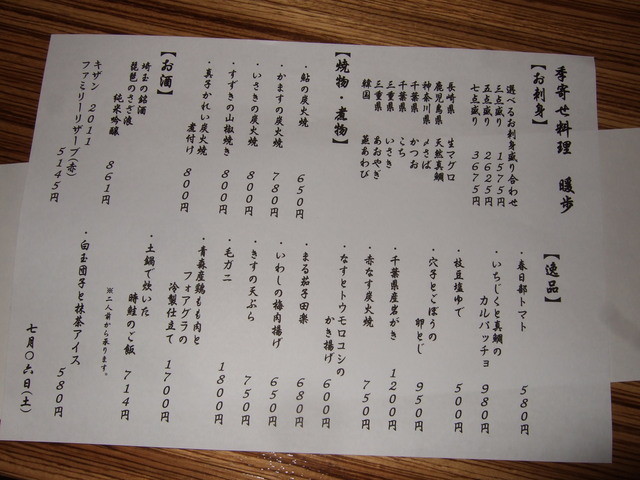 季寄せ料理　暖歩
【お刺身】
選べるお刺身盛り合わせ
三点盛り　1575円
五点盛り　2625円
七点盛り　3675円
長崎県　生マグロ
鹿児島県　天然真鯛
神奈川県　〆さば
千葉県　かつお
千葉県　こち
三重県　いさき
三重県　あおやぎ
韓国　蒸あわび
【焼物・煮物】
・鮎の炭火焼　650円
・かますの炭火焼　780円
・いさきの炭火焼　800円
・すずきの山椒焼き　800円
・真子かれい炭火焼
煮付け　800円
【お酒】
埼玉の銘酒
琵琶のさざ浪
純米吟醸　861円
キザン　2011
ファミリーリザーブ（赤）
5145円
【逸品】
・春日部トマト　580円
・いちじくと真鯛の
カルパッチョ　980円
・枝豆塩ゆで　500円
・穴子とごぼうの
卵とじ　950円
・千葉県産岩がき　1200円
・赤なす炭火焼　750円
・なすとトウモロコシの
かき揚げ　600円
・まる茄子田楽　680円
・いわしの梅肉揚げ　650円
・きすの天ぷら　750円
・毛ガニ　1800円
・青森産鶏もも肉と
フォアグラの
冷製仕立て　1700円
・土鍋で炊いた
時鮭のご飯　714円
※二人前から承ります。
・白玉団子と抹茶アイス　580円
七月〇六日（土）